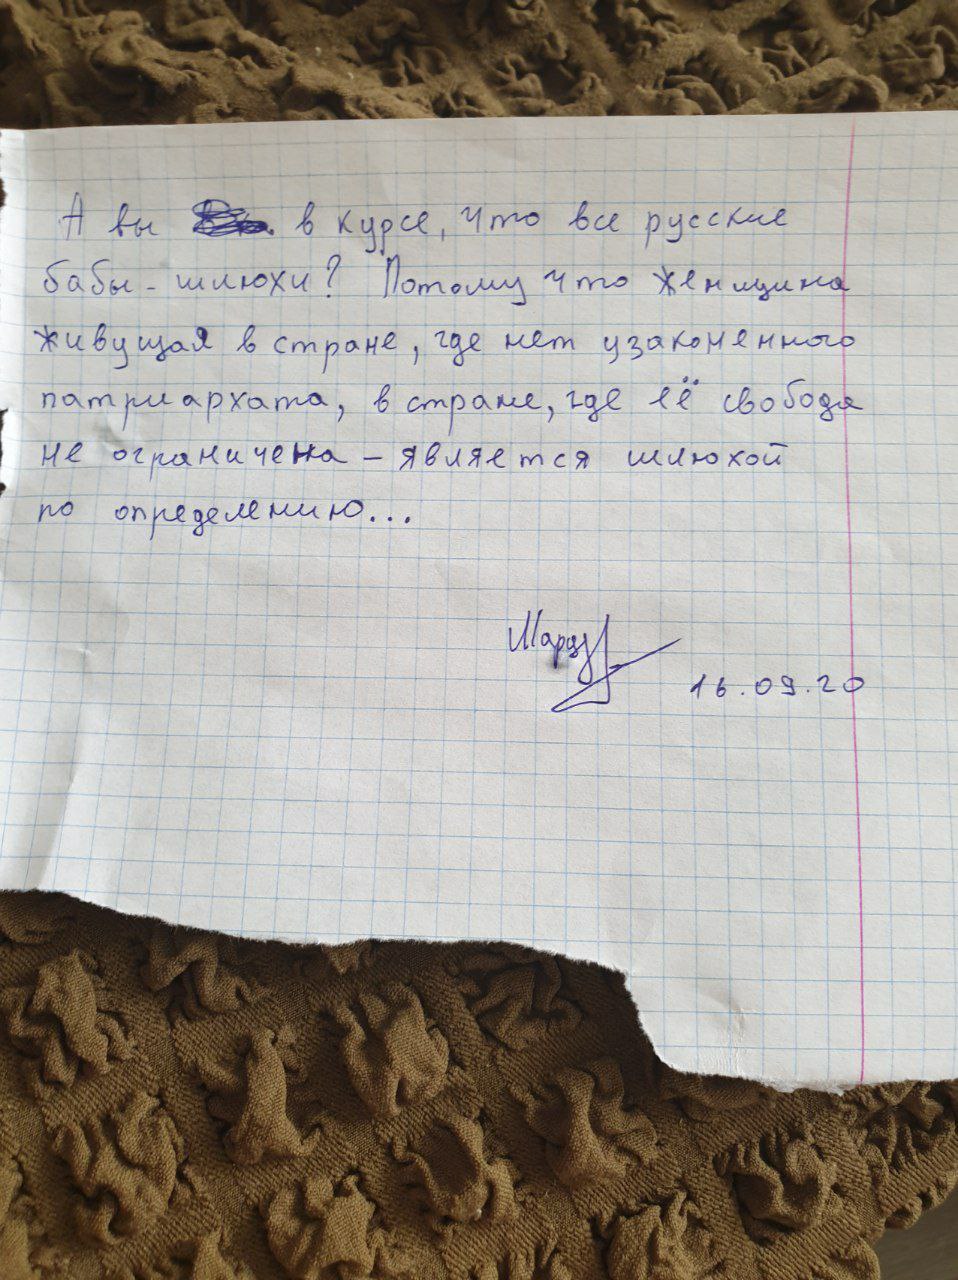 А вы в курсе, что все русские
бабы - шлюхи? Потому что женщина
живущая в стране, где нет узаконенного
патриархата, в стране, где её свобода
не ограничена - является шлюхой
по определению...
16.09.20